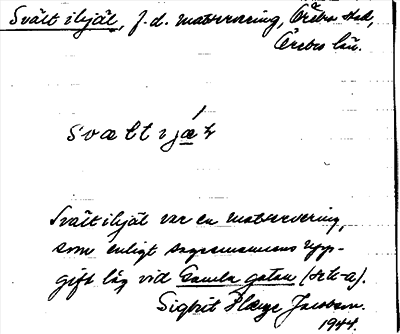 Svält ihjäl, f.d. matservering, Örebro stad,
Örebro län.
Svält ihjäl var en matservering,
som enligt sagesmannens upp-
gift låg vid Gamla gatan
Sigbrit Plæng Jacobson.
1944.